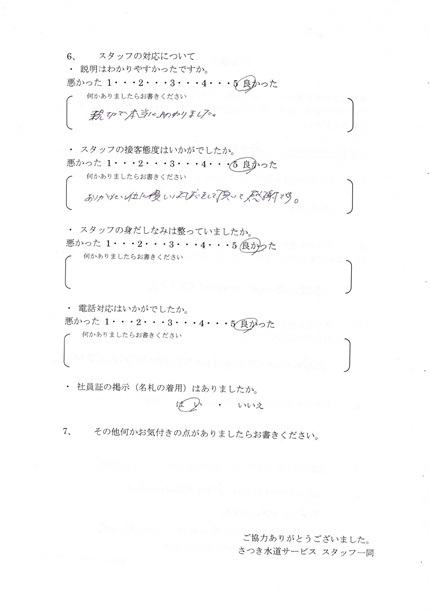 6、 スタッフの対応について
・ 説明はわかりやすかったですか。
悪かった 1・・・2・・・3・・・4・・・5 良かった
何かありましたらお書きください
親切で本当に助かりました。
・ スタッフの接客態度はいかがでしたか。
悪かった 1・・・2・・・3・・・4・・・5 良かった
何かありましたらお書きください
ありがたい位に優しい対応をして頂いて感謝です。
・ スタッフの身だしなみは整っていましたか。
悪かった 1・・・2・・・3・・・4・・・5 良かった
何かありましたらお書きください
・ 電話対応はいかがでしたか。
悪かった 1・・・2・・・3・・・4・・・5 良かった
何かありましたらお書きください
・ 社員証の掲示（名札の着用）はありましたか。
はい ・ いいえ
7、 その他何かお気付きの点がありましたらお書きください。
ご協力ありがとうございました。
さつき水道サービス スタッフ一同